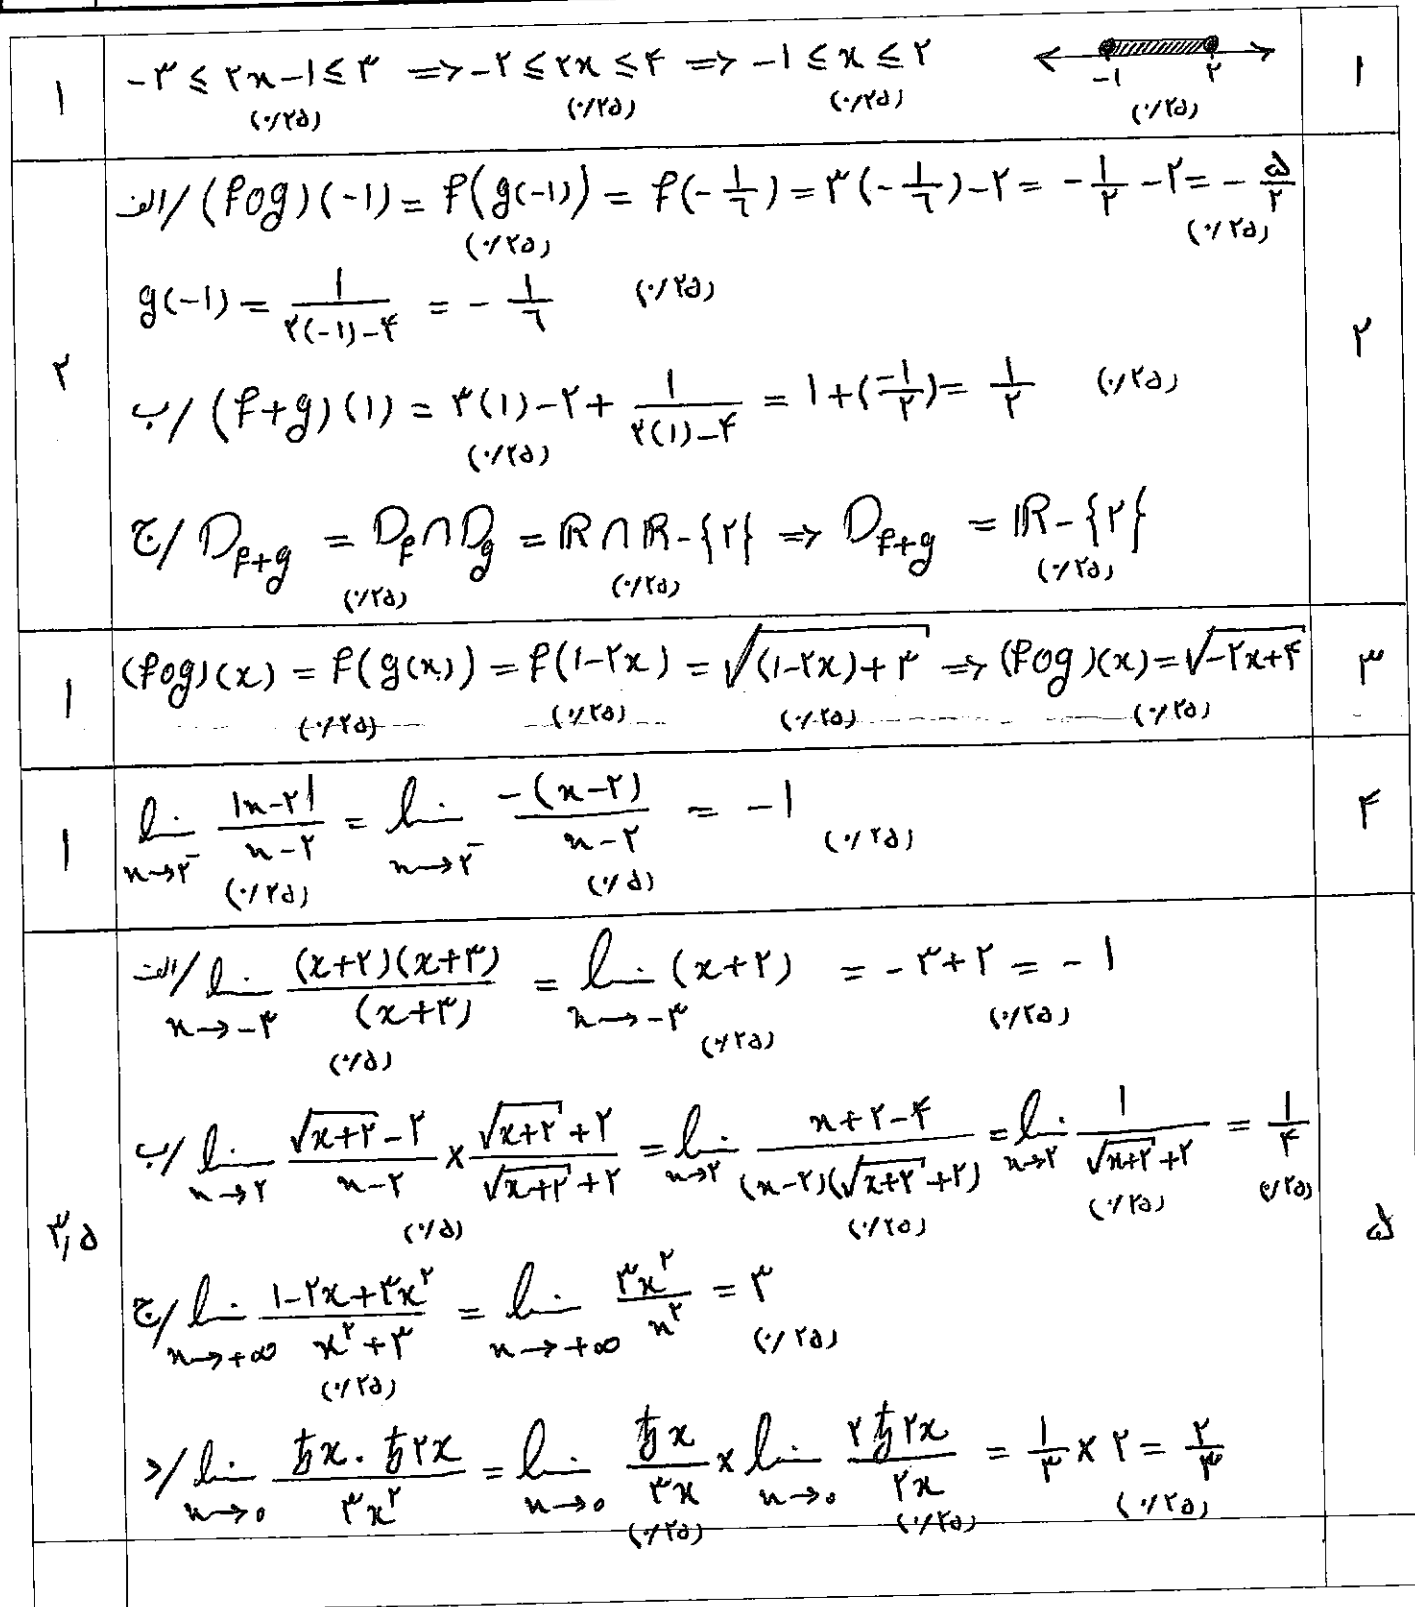 ۱ -۳ ≤ ۲x-۱ ≤ ۳ ⇒ -۲ ≤ ۲x ≤ ۴ ⇒ -۱ ≤ x ≤ ۲ -۱ ۲ ۱
(۰/۲۵) (۰/۲۵) (۰/۲۵) (۰/۲۵)
الف/ (fog)(-۱) = f(g(-۱)) = f(-۱/۶) = ۳(-۱/۶)-۲ = -۱/۲ -۲ = -۵/۲
(۰/۲۵) (۰/۲۵)
g(-۱) = ۱/(۲(-۱)-۴) = -۱/۶ (۰/۲۵)
۲ ۲
ب/ (f+g)(۱) = ۳(۱)-۲+ ۱/(۲(۱)-۴) = ۱+(-۱/۲) = ۱/۲ (۰/۲۵)
(۰/۲۵)
ج/ D_{f+g} = D_f ∩ D_g = ℝ ∩ ℝ-{۲} ⇒ D_{f+g} = ℝ-{۲}
(۰/۲۵) (۰/۲۵) (۰/۲۵)
۱ (fog)(x) = f(g(x)) = f(۱-۲x) = √((۱-۲x)+۳) ⇒ (fog)(x) = √(-۲x+۴) ۳
(۰/۲۵) (۰/۲۵) (۰/۲۵) (۰/۲۵)
۱ lim_{x→۲⁻} |x-۲|/(x-۲) = lim_{x→۲⁻} -(x-۲)/(x-۲) = -۱ (۰/۲۵) ۴
(۰/۲۵) (۰/۵)
الف/ lim_{x→-۳} (x+۲)(x+۳)/(x+۳) = lim_{x→-۳} (x+۲) = -۳+۲ = -۱
(۰/۵) (۰/۲۵) (۰/۲۵)
ب/ lim_{x→۲} (√(x+۲)-۲)/(x-۲) × (√(x+۲)+۲)/(√(x+۲)+۲) = lim_{x→۲} (x+۲-۴)/((x-۲)(√(x+۲)+۲)) = lim_{x→۲} ۱/(√(x+۲)+۲) = ۱/۴
(۰/۵) (۰/۲۵) (۰/۲۵) (۰/۲۵)
۳,۵ ۵
ج/ lim_{x→+∞} (۱-۲x+۳x²)/(x²+۳) = lim_{x→+∞} ۳x²/x² = ۳
(۰/۲۵) (۰/۲۵)
د/ lim_{x→۰} tg x . tg ۲x/۳x² = lim_{x→۰} tg x/۳x × lim_{x→۰} ۲ tg ۲x/۲x = ۱/۳ × ۲ = ۲/۳
(۰/۲۵) (۰/۲۵) (۰/۲۵)